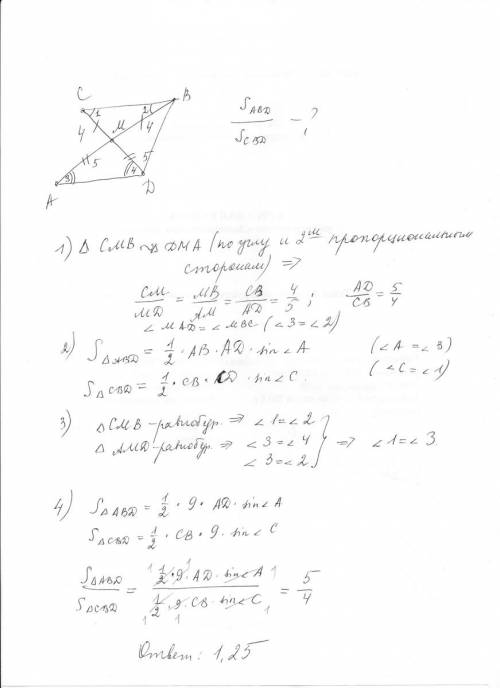 C 1 2 B
4 M 4
5 5
A 3 4 D
S_ABD / S_CBD - ?
1) Δ CMB ∾ Δ DMA (по углу и 2ум пропорциональным
сторонам) =>
CM/MD = MB/AM = CB/AD = 4/5 ; AD/CB = 5/4
∠ MAD = ∠ MBC (∠3 = ∠2)
2) S_ΔABD = 1/2 · AB · AD · sin∠A (∠A = ∠3)
S_ΔCBD = 1/2 · CB · CD · sin∠C. (∠C = ∠1)
3) ΔCMB - равнобедр. => ∠1 = ∠2
Δ AMD - равнобедр. => ∠3 = ∠4 } => ∠1 = ∠3.
∠3 = ∠2
4) S_ΔABD = 1/2 · 9 · AD · sin∠A
S_ΔCBD = 1/2 · CB · 9 · sin∠C
S_ΔABD / S_ΔCBD = 1/2 · 9 · AD · sin∠A / 1/2 · 9 · CB · sin∠C = 5/4
Ответ: 1,25